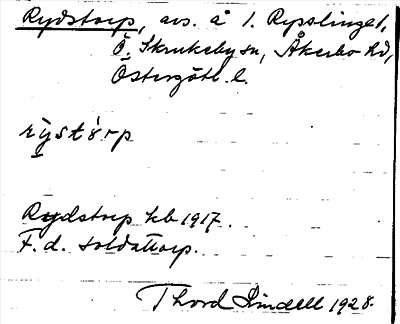 Rydstorp, avs. å 1. Rysslinge 1,
Ö. Skrukeby sn, Åkerbo hd,
Östergötl. l.
rystorp
Rydstorp kb 1917.
F. d. soldattorp.
Thord Lindell 1928.